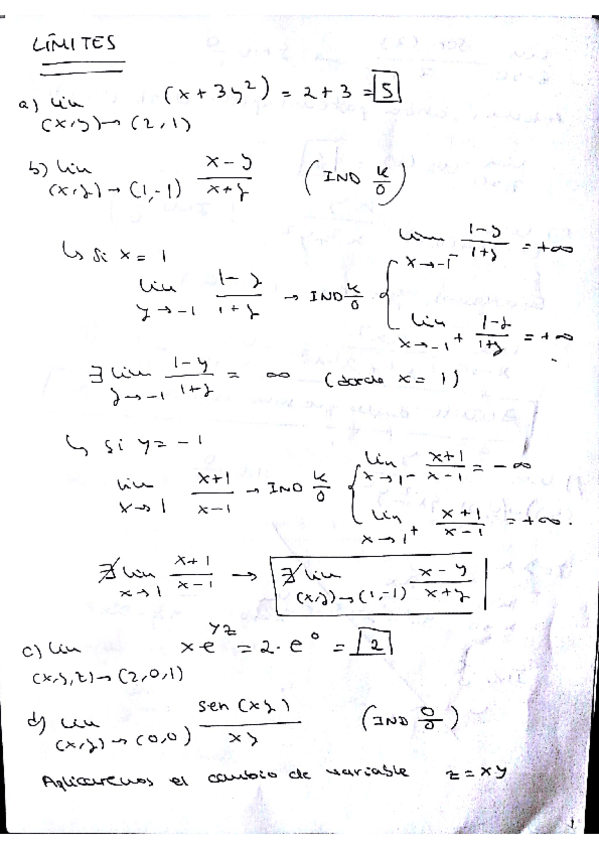 LÍMITES
a) lim (x,y)→(2,1) (x+3y²) = 2+3 = 5
b) lim (x,y)→(1,-1) x-y / x+y (IND k/0)
↳ Si x = 1
lim y→-1 1-y / 1+y → IND k/0 { lim x→-1⁻ 1-y / 1+y = +∞
lim x→-1⁺ 1-y / 1+y = +∞
∃ lim y→-1 1-y / 1+y = ∞ (donde x = 1)
↳ si y = -1
lim x→1 x+1 / x-1 → IND k/0 { lim x→1⁻ x+1 / x-1 = -∞
lim x→1⁺ x+1 / x-1 = +∞.
∄ lim x→1 x+1 / x-1 → ∄ lim (x,y)→(1,-1) x-y / x+y
c) lim (x,y,z)→(2,0,1) x·e^yz = 2·e⁰ = 2
d) lim (x,y)→(0,0) sen(xy) / xy (IND 0/0)
Aplicaremos el cambio de variable z = xy